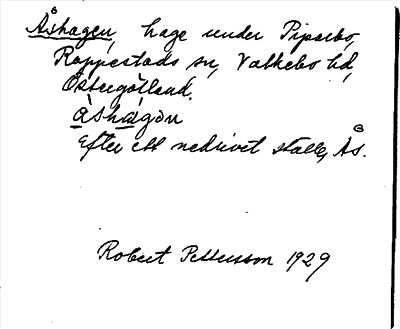 Åshagen, hage under Piparbo,
Rappestads sn, Valkebo hd,
Östergötland.
åshàgɷn
Efter ett nedrivet ställe, Ås.
Robert Pettersson 1929